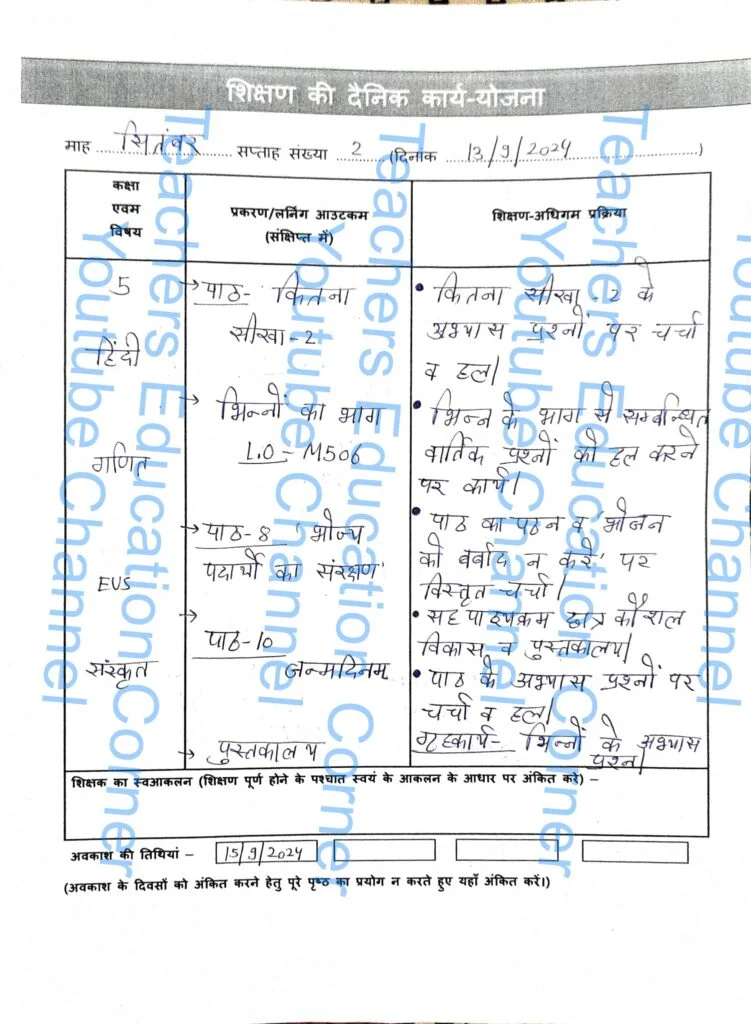 शिक्षण की दैनिक कार्य-योजना
माह सितंबर सप्ताह संख्या 2 (दिनांक 13/9/2024)
कक्षा
एवम
विषय
प्रकरण/लर्निंग आउटकम
(संक्षिप्त में)
शिक्षण-अधिगम प्रक्रिया
5
हिंदी
गणित
EVS
संस्कृत
→ पाठ- कितना
सीखा-2
→ भिन्नों का भाग
L.O - M506
→ पाठ-8 'भोज्य
पदार्थों का संरक्षण'
→
पाठ-10
जन्मदिनम्
→ पुस्तकालय
• कितना सीखा-2 के
अभ्यास प्रश्नों पर चर्चा
व हल।
• भिन्न के भाग से सम्बन्धित
वार्तिक प्रश्नों को हल करने
पर कार्य।
• पाठ का पठन व 'भोजन
को बर्बाद न करें' पर
विस्तृत चर्चा।
• सह पाठ्यक्रम छात्र कौशल
विकास व पुस्तकालय।
• पाठ के अभ्यास प्रश्नों पर
चर्चा व हल।
गृहकार्य- भिन्नों के अभ्यास
प्रश्न।
शिक्षक का स्वआकलन (शिक्षण पूर्ण होने के पश्चात स्वयं के आकलन के आधार पर अंकित करें) –
अवकाश की तिथियां – 15/9/2024
(अवकाश के दिवसों को अंकित करने हेतु पूरे पृष्ठ का प्रयोग न करते हुए यहाँ अंकित करें।)
Teachers Education Corner
Youtube Channel
Teachers Education Corner
Youtube Channel
Teachers Education Corner
Youtube Channel
Youtube Channel